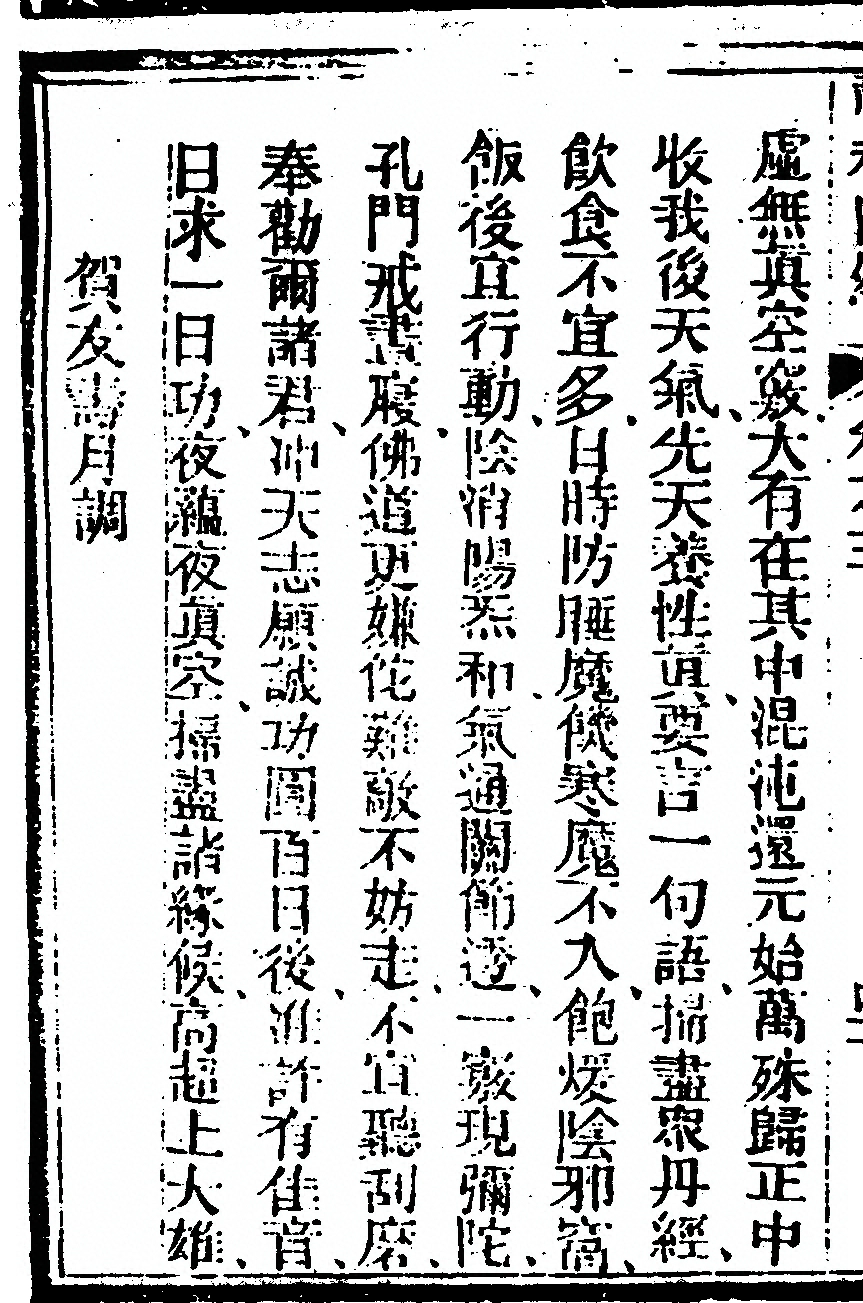 虛無真空竅大有在其中混沌還元始萬殊歸正中
收我後天氣先天養性真要言一句語掃盡眾丹經
飲食不宜多日時防睡魔饑寒魔不入飽煖陰邪窩
飯後宜行動陰消陽炁和氣通關節透一竅現彌陀
孔門戒晝寢佛道更嫌佗難敵不妨走不宜聽刮磨
奉勸爾諸君冲天志願誠功圓百日後准許有佳音
日求一日功夜蘊夜真空掃盡諸緣候高超上大雄
賀友壽月調